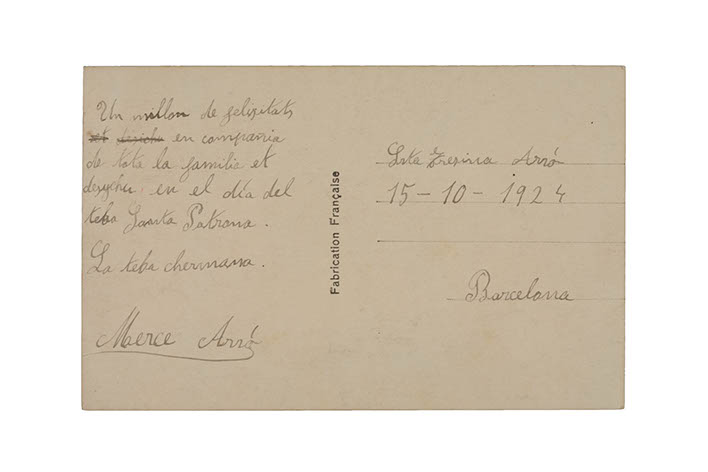 Un millon de felisitats
et desicha en compania
de tota la familia et
desychu, en el día del
teba Santa Patrona.
La teba chermana.
Merce Arró
Fabrication Française
Srta Tresina Arró
15-10-1924
Barcelona